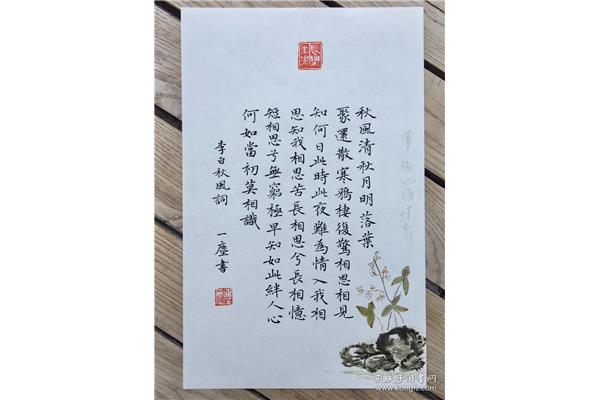 秋風清秋月明落葉
聚還散寒鴉棲復驚相思相見
知何日此時此夜難為情入我相
思知我相思苦長相思兮長相憶
短相思兮無窮極早知如此絆人心
何如當初莫相識
李白秋風詞 一塵書
孔夫子旧书网